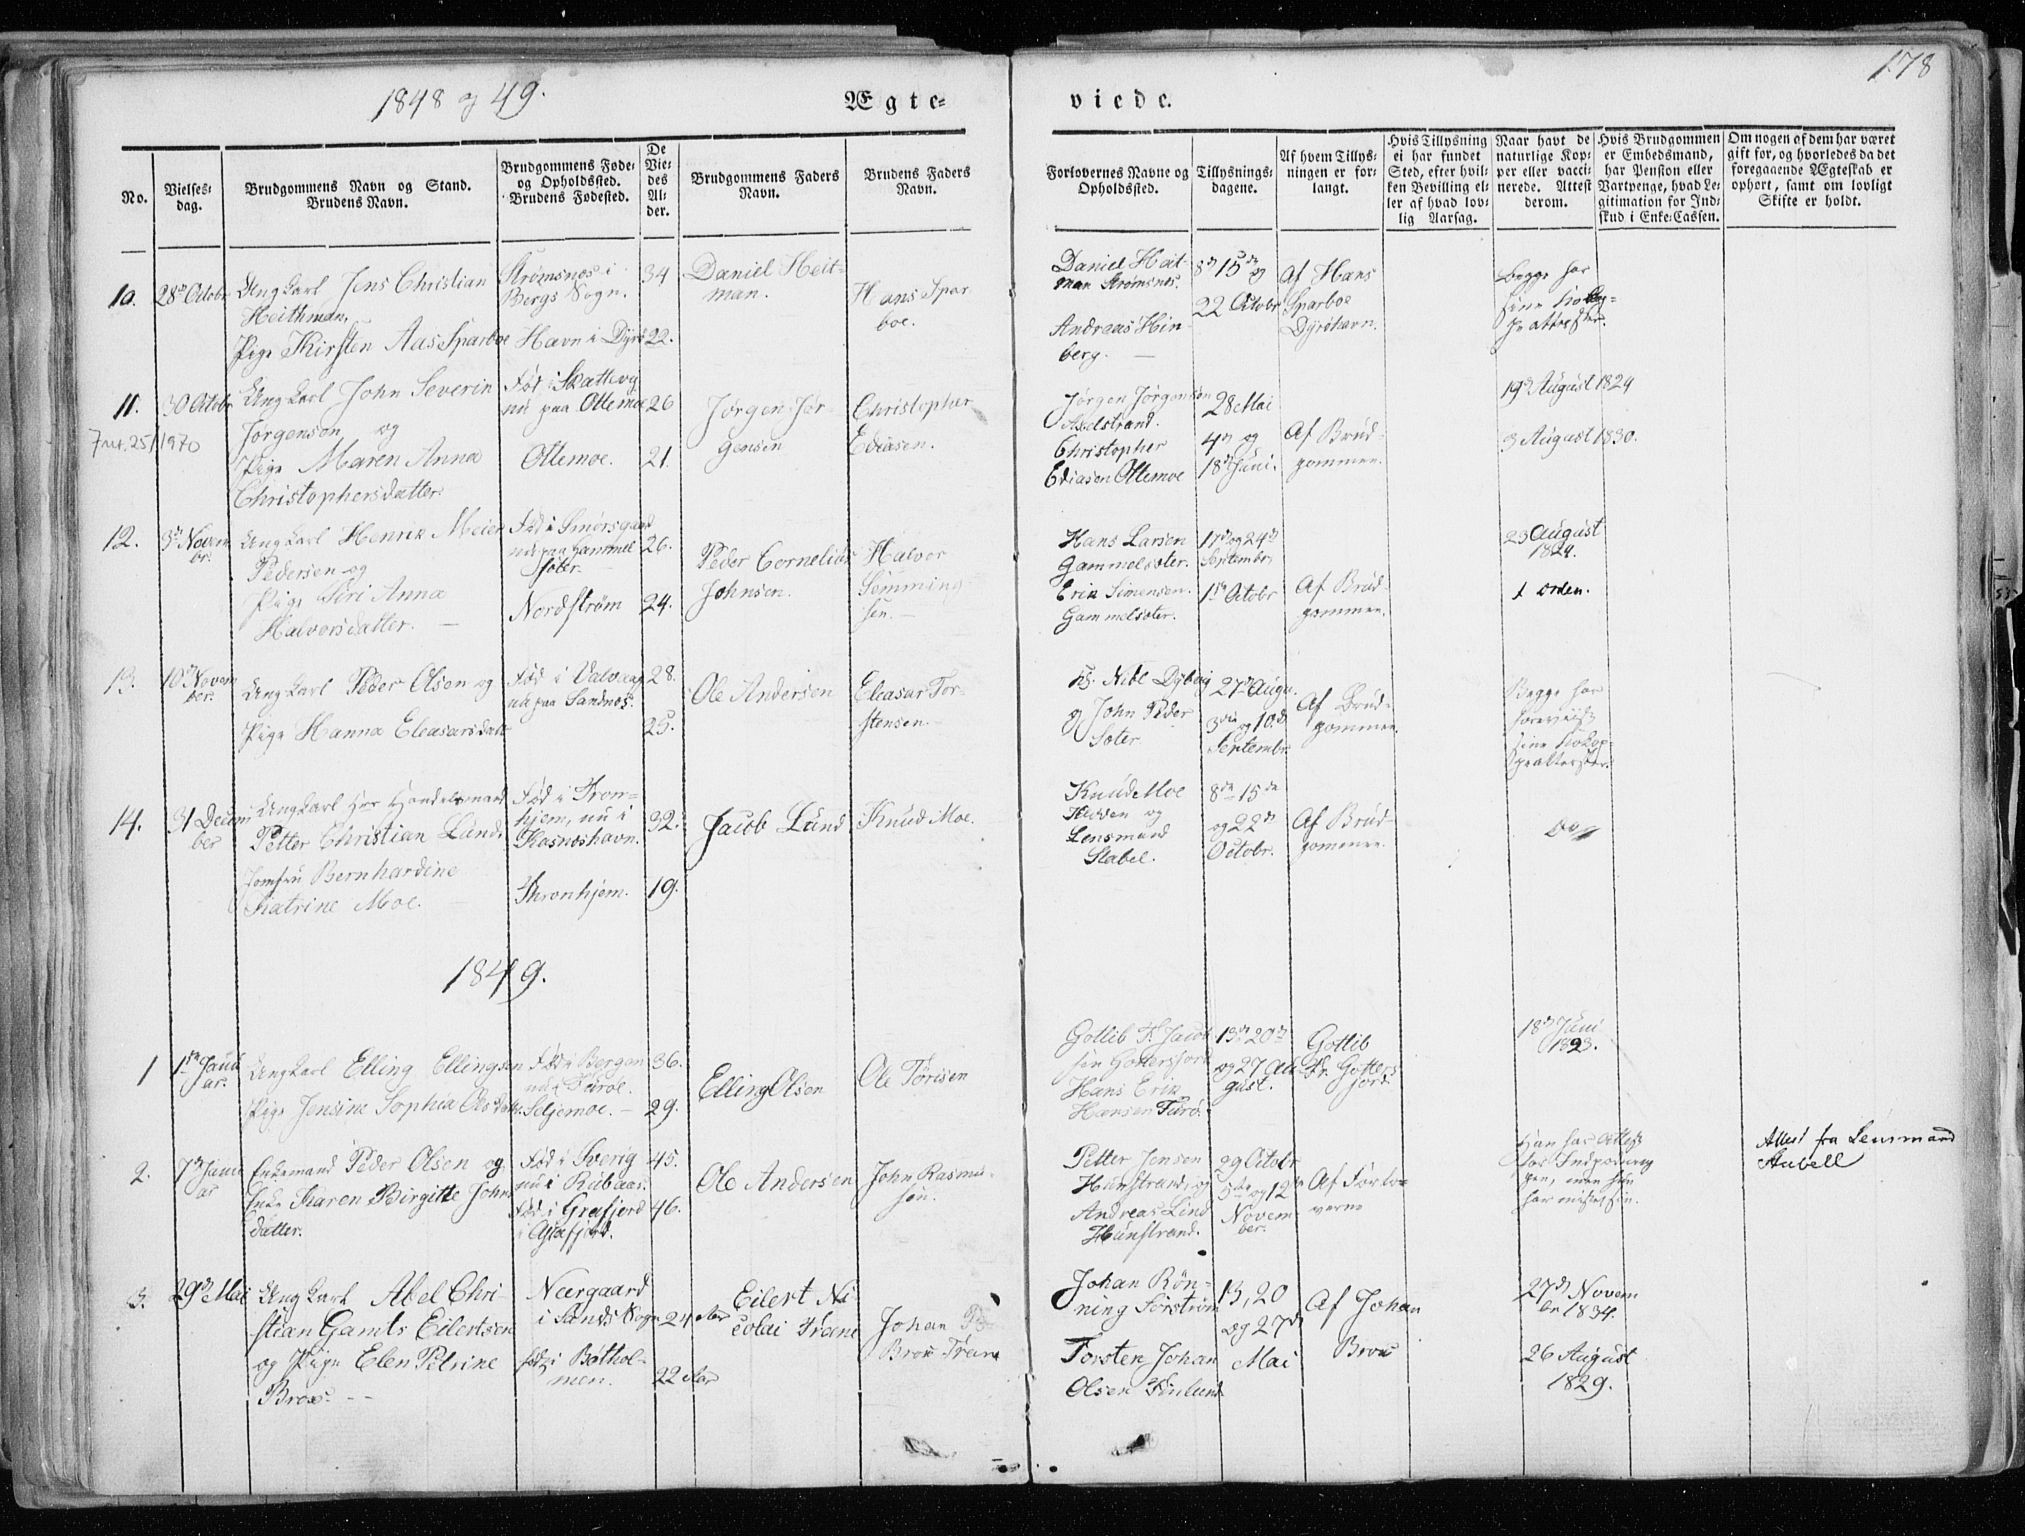 1848 og 49.
Ægte-
viede.
178
No.
Vielses-
dag.
Brudgommens Navn og Stand.
Brudens Navn.
Brudgommens Føde-
og Opholdssted.
Brudens Fødested.
De
Vie-
des
Al-
der.
Brudgommens Faders
Navn.
Brudens Faders
Navn.
Forlovernes Navne og
Opholdssted.
Tillysnings-
dagene.
Af hvem Tillys-
ningen er for-
langt.
Hvis Tillysning
ei har fundet
Sted, efter hvil-
ken Bevilling el-
ler af hvad lov-
lig Aarsag.
Naar havt de
naturlige Kop-
per eller vacci-
nerede. Attest
derom.
Hvis Brudgommen
er Embedsmand,
har Pension eller
Vartpenge, hvad Le-
gitimation for Ind-
skud i Enke-Cassen.
Om nogen af dem har været
gift før, og hvorledes da det
foregaaende Ægteskab er
ophørt, samt om lovligt
Skifte er holdt.
10.
28de Octobr
Ungkarl Jens Christian
Heithman,
Pige Kirsten Aas Sparboe
Strømsnes i
Bergs Sogn.
Havn i Dyrø
34
22.
Daniel Heit-
man.
Hans Spar
boe.
Daniel Heit-
man Strømsnes.
Andreas Hin-
berg. —
8de 15de og
22 Octobr
Af Hans
Sparboe
Dyrøhavn.
begge har
sine
11.
30 Octobr
25/1970
Ungkarl John Severin
Jørgensen og
Pige Maren Anna
Christophersdatter.
Fød i Skattevog
nu paa Ottemoe
Ottemoe.
26
21.
Jørgen Jør-
gensen
Christopher
Ediasen.
Jørgen Jørgensen
Christopher
Ediasen Ottemoe
28 Mai
4de og
18de Juni.
Af Brud-
gommen.
19de August 1824
3 August 1830.
12.
3de Novem
br.
Ungkarl Henrik Meier
Pedersen og
Pige Siri Anna
Halvorsdatter. —
Fød i Smørsgaard
nu paa Gammel
sæter.
Nordstrøm
26.
24.
Peder Cornelius
Johnsen.
Halvor
Semming
sen. —
Hans Larsen
Gammelsæter.
Erik Simensen.
Gammelsæter.
17de og 24de
Septembr
1ste Octobr
Af Brud-
gommen.
23 August
1824.
i orden.
13.
10de Novem
ber.
Ungkarl Peder Olsen og
Pige Hanna Eleasarsdatr
Fød i Valvaag
nu paa Sandnes.
28.
25.
Ole Andersen
Eleasar Tor-
stensen.
og John Peder
Sæter
27de Augu.
3die og 10.de
Septembr.
Af Brud-
gommen.
Begge har
foreviist
sine Kokop-
peattester.
14.
31 Decem
ber
Ungkarl Hr Handelsmand
Petter Christian Lund
Jomfru Bernhardine
Katrine Moe. —
Fød i Tron-
hjem, nu i
Kasneshavn.
Thronhjem.
32.
19.
Jacob Lund
Knud Moe.
Knud Moe
og
Lensmand
Stabel.
8de 15de
og 22de
Octobr.
Af Brud-
gommen.
do
1849.
1
1ste Janu
ar.
Ungkarl Elling Ellingsen
Pige Jensine Sophia Olsdatter
Fød i Bergen
nu i
Seljemoe. —
36.
29.
Elling Olsen
Ole Torisen
Gotlib Fr Jacob
sen Gottersfjord
Hans Erik
Hansen Furø.
13de 20de
og 27 Au
gust.
Gotlib
Fr. Gotters
fjord.
18de Juni
1823.
2.
7de Janu
ar
Enkemand Peder Olsen og
Enke Karen Birgitte Johns
datter.
Fød i Sverig
nu i Rubaas.
Fød i Grafjord
45.
46.
Ole Andersen
John Rasmu-
sen.
Petter Jensen
Hunstrand, og
Andreas Lind
Hunstrand.
29 Octobr
5te og 12te
Novem
ber.
Af Forlo-
verne
Han har Attest
for
men hun
har mistet sin.
Attest fra Lensmand
Stabell
3.
29de Mai
Ungkarl Abel Chri-
stian Gamts Eilertsen
og Pige Elen Petrine
Brox. --
Nærgaard
i Sands Sogn
fød i Bothol-
men.
24 Aar
22 Aar
Eilert Ni
colai
Johan
Brox
Johan Røn-
ning Sørstrøm
Torsten Johan
Olsen Finlund
13, 20
og 27de
Mai
Af Johan
Brox
27de Novem
br 1834.
26 August
1829.